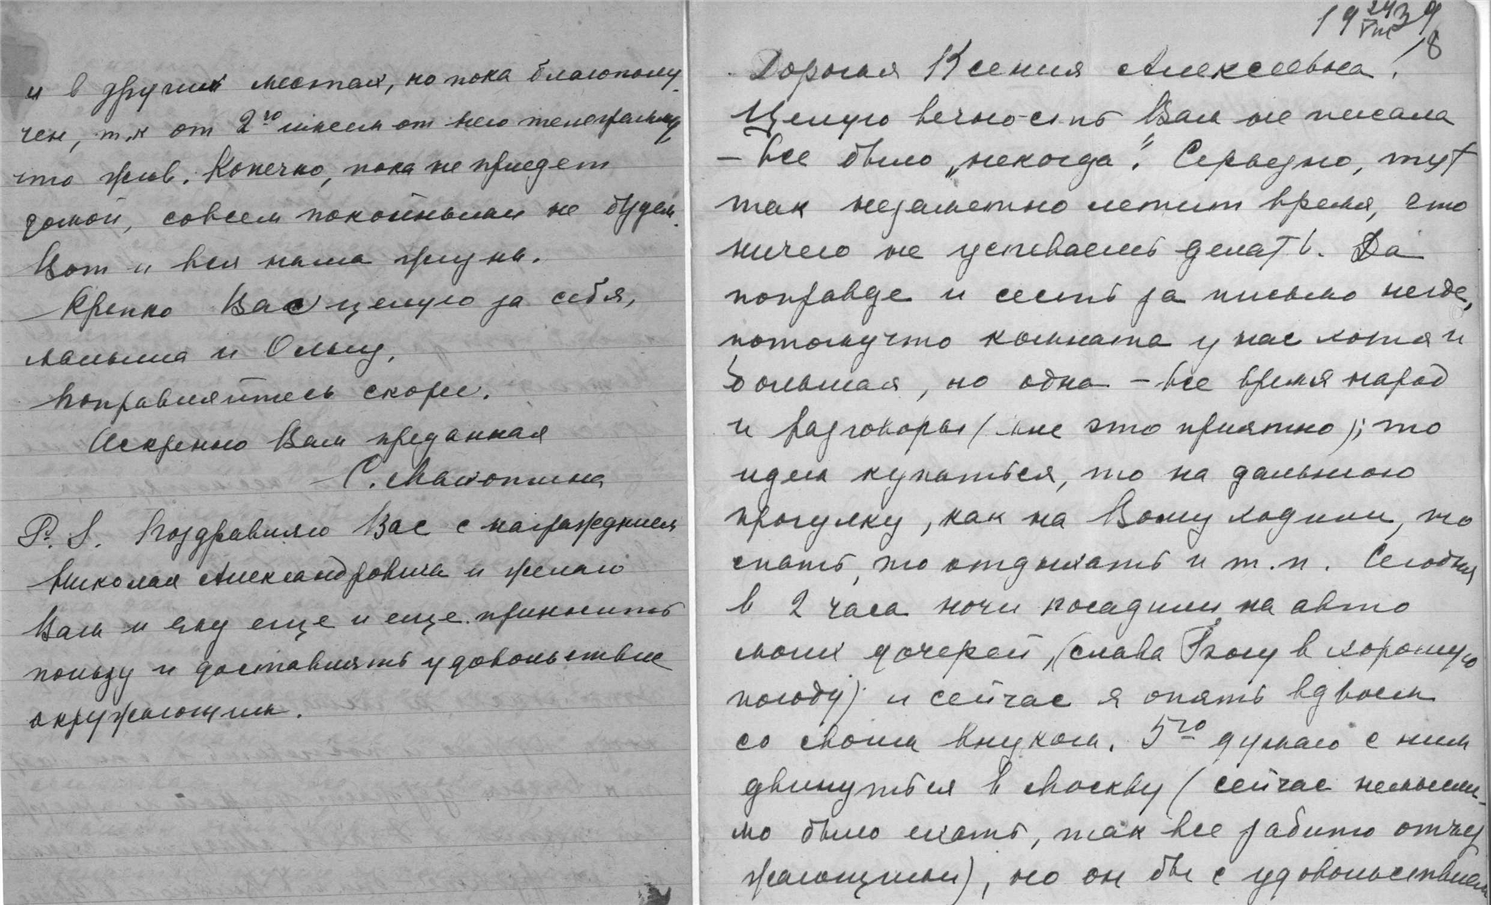 и в других местах, но пока благополу-
чен, т.к от 2го имели от него телеграмму
что жив. Конечно, пока не приедет
домой, совсем покойными не будем.
Вот и вся наша жизнь.
Крепко Вас целую за себя,
малыша и Ольгу.
Поправляйтесь скорее.
Искренно Вам преданная
С. Малютина
P. S. Поздравляю Вас с награждением
Николая Александровича и желаю
Вам и ему еще и еще приносить
пользу и доставлять удовольствие
окружающим.
19 24/VIII 39
18
Дорогая Ксения Алексеевна!
Целую вечность Вам не писала
– все было „некогда". Серьезно, тут
так незаметно летит время, что
ничего не успеваешь делать. Да
поправде и сесть за письмо негде,
потомучто комната у нас хотя и
большая, но одна – все время народ
и разговоры (мне это приятно); то
идем купаться, то на дальнюю
прогулку, как на Вашу ходили, то
спать, то отдыхать и т.п. Сегодня
в 2 часа ночи посадили на авто
моих дочерей, (слава Богу в хорошую
погоду) и сейчас я опять вдвоем
со своим внуком. 5го думаю с ним
двинуться в Москву (сейчас немысли-
мо было ехать, так все забито отъез
жающими), но он бы с удовольствием